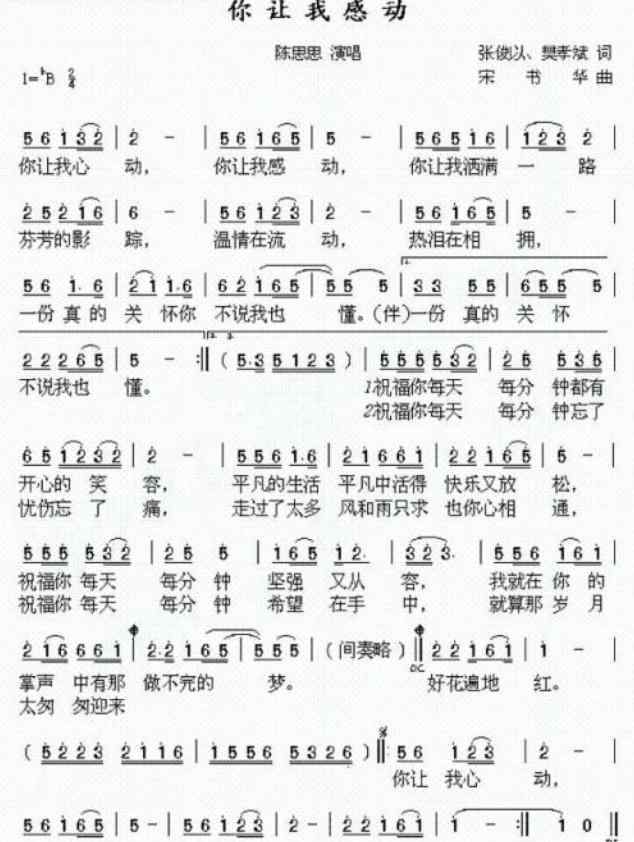 你让我感动
陈思思 演唱 张俊以、樊孝斌 词
1=♭B 2/4 宋书华 曲
5 6 1 3 2 | 2 - | 5 6 1 6 5 | 5 - | 5 6 5 1 6 | 1 2 3 2 |
你让我心 动， 你让我感 动， 你让我洒满 一 路
2 5 2 1 6 | 6 - | 5 6 1 2 3 | 2 - | 5 6 1 6 5 | 5 - |
芬芳的影 踪， 温情在流 动， 热泪在相 拥，
5 6 1. 6 | 2 1 1. 6 | 6 2 1 6 5 | 5 5 5 | 3 3 5 5 | 6 5 5 5 |
一份 真 的 关 怀你 不说我也 懂。(伴)一份 真的 关 怀
2 2 2 6 5 | 5 - :‖ ( 5. 3 5 1 2 3 ) | 5 5 5 5 3 2 | 2 5 5 5 5 |
不说我也 懂。 1祝福你每天 每分 钟都有
2祝福你每天 每分 钟忘了
6 5 1 2 3 2 | 2 - | 5 5 6 1. 6 | 2 1 6 6 1 | 2 2 1 6 5 | 5 - |
开心的 笑 容， 平凡的生活 平凡中活得 快乐又放 松，
忧伤忘 了 痛， 走过了太多 风和雨只求 也你心相 通，
5 5 5 5 3 2 | 2 5 5 | 1 6 5 1 2. | 3 2 3. | 5 5 5 1 6 1 |
祝福你 每天 每分 钟 坚强 又从 容， 我就在 你 的
祝福你 每天 每分 钟 希望 在手 中， 就算那 岁 月
2 1 6 6 6 1 | 2. 2 1 6 5 | 5 5 5 | (间奏略) ‖ 2 2 1 6 1 | 1 - |
D.C.
掌声 中有那 做不完的 梦。 好花遍地 红。
太匆 匆迎来
( 5 2 2 3 2 1 1 6 | 1 5 5 6 5 3 2 6 ) ‖: 5 6 1 2 3 | 2 - |
你让 我心 动，
5 6 1 6 5 | 5 - | 5 6 1 2 3 | 2 - | 2 2 1 6 1 | 1 - :‖ 1 0 ‖